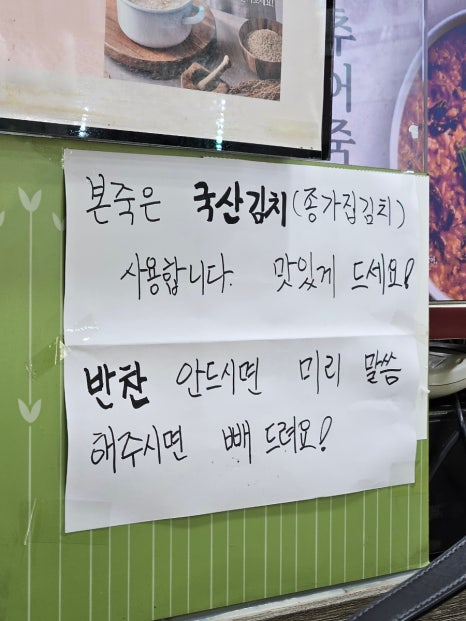 추어죽
본죽은 국산김치(종가집김치)
사용합니다. 맛있게 드세요!
반찬 안드시면 미리 말씀
해주시면 빼 드려요!